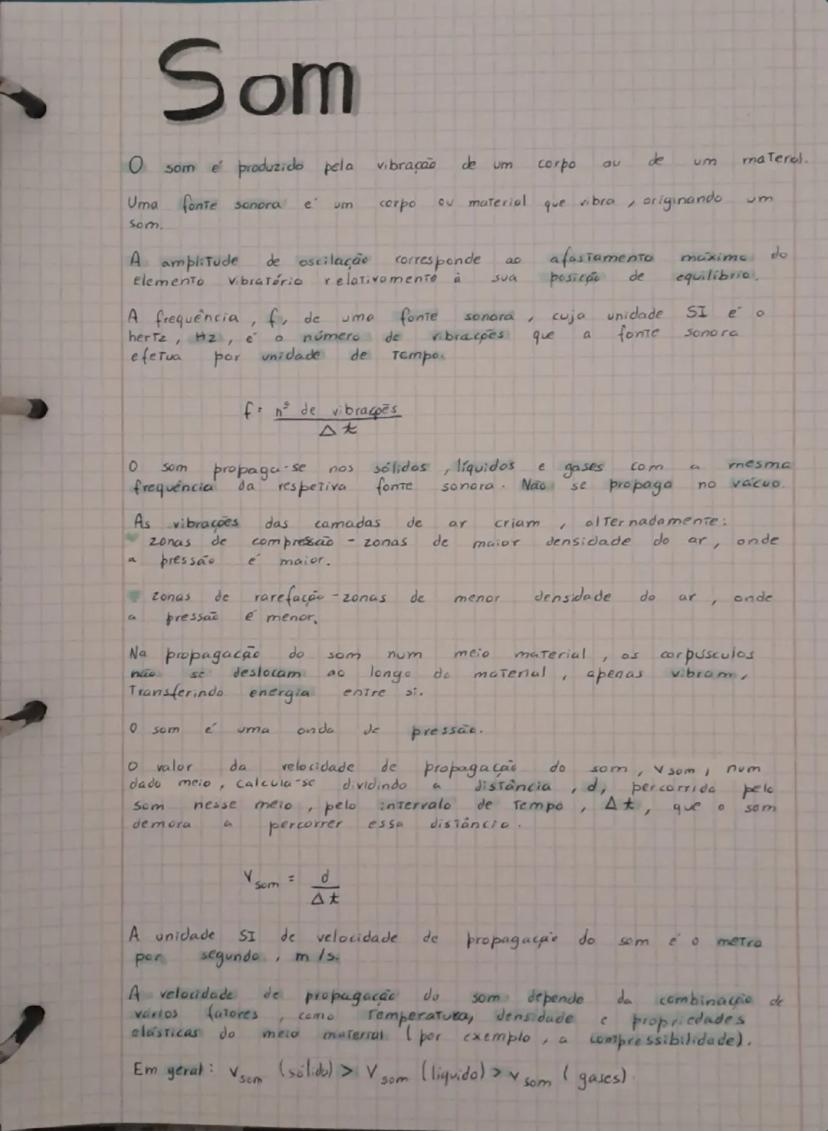 Som
O som é produzido pela vibração de um corpo ou de um materal.
Uma fonte sonora é um corpo ou material que vibra, originando um
som.
A amplitude de oscilação corresponde ao afastamento máximo do
elemento vibratório relativamente à sua posição de equilíbrio.
A frequência, f, de uma fonte sonora, cuja unidade SI é o
hertz, Hz, é o número de vibrações que a fonte sonora
efetua por unidade de tempo.
f = nº de vibrações
Δt
O som propaga-se nos sólidos, líquidos e gases com a mesma
frequência da respetiva fonte sonora. Não se propaga no vácuo.
As vibrações das camadas de ar criam, alternadamente:
zonas de compressão - zonas de maior densidade do ar, onde
a pressão é maior.
zonas de rarefação - zonas de menor densidade do ar, onde
a pressão é menor.
Na propagação do som num meio material, os corpúsculos
não se deslocam ao longo do material, apenas vibram,
transferindo energia entre si.
O som é uma onda de pressão.
O valor da velocidade de propagação do som, vsom, num
dado meio, calcula-se dividindo a distância, d, percorrida pelo
som nesse meio, pelo intervalo de tempo, Δt, que o som
demora a percorrer essa distância.
Vsom = d
Δt
A unidade SI de velocidade de propagação do som é o metro
por segundo, m/s.
A velocidade de propagação do som depende da combinação de
vários fatores, como temperatura, densidade e propriedades
elásticas do meio material (por exemplo, a compressibilidade).
Em geral: Vsom (sólido) > Vsom (líquido) > Vsom (gases)